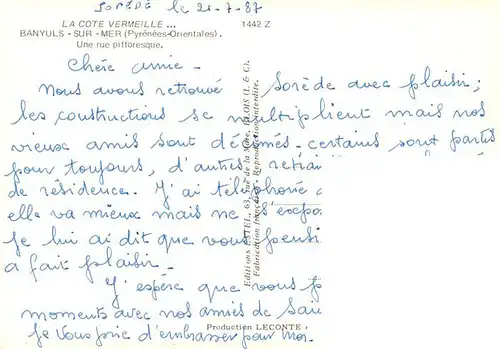 SORÈDE le 21-7-87
LA COTE VERMEILLE ...
1442 Z
BANYULS - SUR - MER (Pyrénées-Orientales).
Une rue pittoresque.
Chère amie -
Nous avons retrouvé Sorède avec plaisir;
les constructions se multiplient mais nos
vieux amis sont décimés - certains sont partis
pour toujours, d'autres
de résidence. J'ai téléphoné
elle va mieux mais ne s'
Je lui ai dit que vous
a fait plaisir -
J'espère que vous
moments avec nos amies de
Je vous prie d'embrasser pour moi.
Editions ESTEL, 63, rue de la Mare, BLOIS (L & C).
Fabrication française - Reproduction interdite.
Production LECONTE